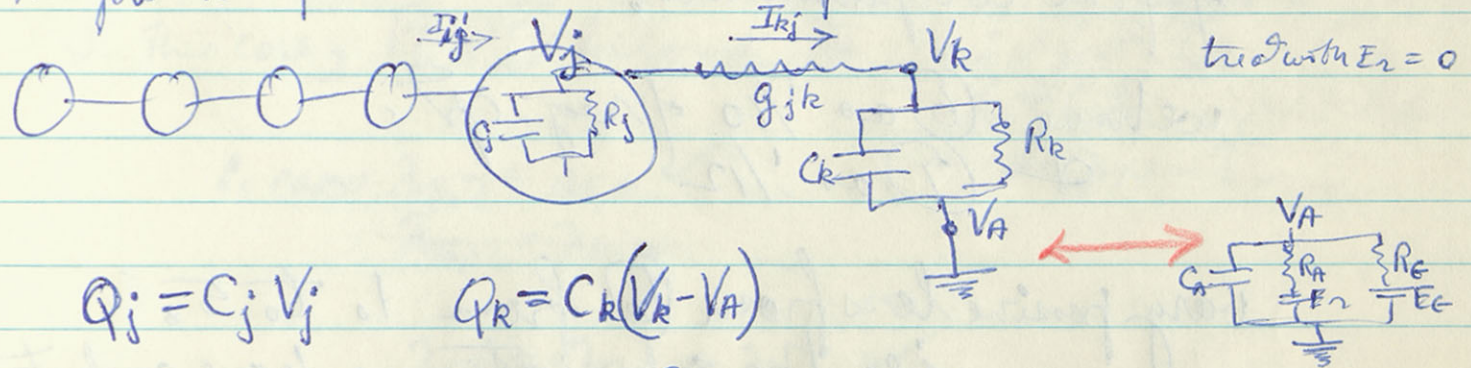 I_ij V_j I_kj V_k
treat with E_r = 0
C_j R_j g_jk
C_k R_k
V_A V_A
C_A R_A E_r R_E E_E
Q_j = C_j V_j Q_k = C_k(V_k - V_A)